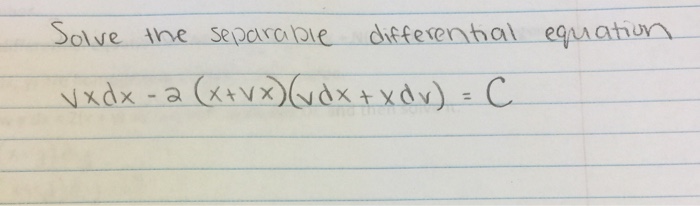 Solve the separable differential equation
vxdx - 2 (x+vx)(vdx + xdv) = C